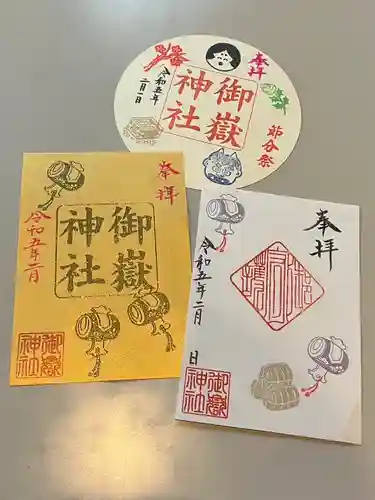 奉拝
御嶽
神社
令和五年
二月一日
節分祭
奉拝
御嶽
神社
令和五年二月
御嶽
神社
奉拝
令和五年二月 日
御嶽
神社